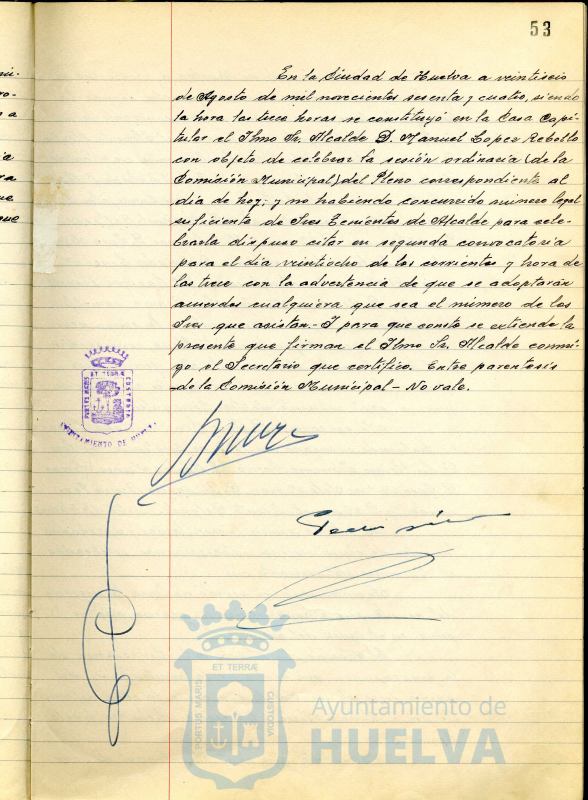 53
En la Ciudad de Huelva a veintiseis
de Agosto de mil novecientos sesenta y cuatro, siendo
la hora las trece horas se constituyó en la Casa Capi-
tular el Ilmo Sr. Alcalde D. Manuel Lopez Rebollo
con objeto de celebrar la sesión ordinaria (de la
Comisión Municipal) del Pleno correspondiente al
dia de hoy; y no habiendo concurrido número legal
suficiente de Sres Tenientes de Alcalde para cele-
brarla dispuso citar en segunda convocatoria
para el dia veintiocho de los corrientes y hora de
las trece con la advertencia de que se adoptarán
acuerdos cualquiera que sea el número de los
Sres que asistan.- Y para que conste se extiende la
presente que firman el Ilmo Sr. Alcalde conmi-
go el Secretario que certifico. Entre parentesis
-de la Comisión Municipal- No vale.
ET TERRÆ
PORTUS MARIS
CUSTODIA
AYUNTAMIENTO DE HUELVA
ET TERRÆ
PORTUS MARIS
CUSTODIA
Ayuntamiento de
HUELVA